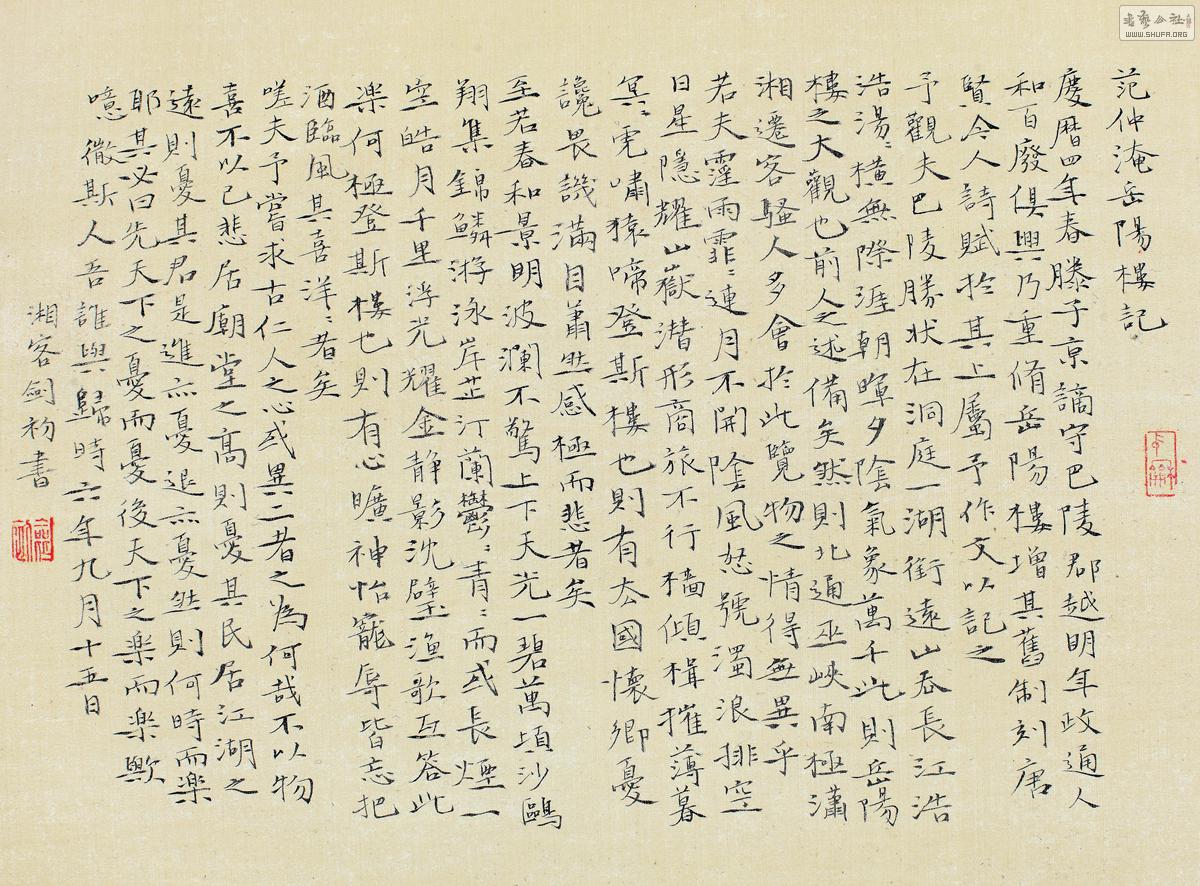 范仲淹岳陽樓記
慶暦四年春滕子京謫守巴陵郡越明年政通人
和百廢俱興乃重脩岳陽樓增其舊制刻唐
賢今人詩賦於其上屬予作文以記之
予觀夫巴陵勝狀在洞庭一湖銜遠山吞長江浩
浩湯〻橫無際涯朝暉夕陰氣象萬千此則岳陽
樓之大觀也前人之述備矣然則北通巫峽南極瀟
湘遷客騷人多會於此覽物之情得無異乎
若夫霪雨霏〻連月不開陰風怒號濁浪排空
日星隱耀山嶽潛形商旅不行檣傾楫摧薄暮
冥〻虎嘯猿啼登斯樓也則有去國懷鄉憂
讒畏譏滿目蕭然感極而悲者矣
至若春和景明波瀾不驚上下天光一碧萬頃沙鷗
翔集錦鱗游泳岸芷汀蘭鬱〻青〻而或長煙一
空皓月千里浮光耀金静影沈璧漁歌互答此
楽何極登斯樓也則有心曠神怡寵辱皆忘把
酒臨風其喜洋〻者矣
嗟夫予嘗求古仁人之心或異二者之為何哉不以物
喜不以己悲居廟堂之高則憂其民居江湖之
遠則憂其君是進亦憂退亦憂然則何時而楽
耶其必曰先天下之憂而憂後天下之楽而楽歟
噫微斯人吾誰與歸時六年九月十五日
湘客剑初書
書藝公社
WWW.SHUFA.ORG